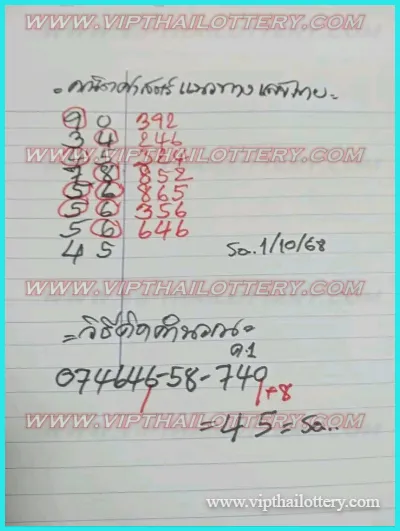 WWW.VIPTHAILOTTERY.COM
= คณิตศาสตร์ แนวทาง เลขท้าย =
WWW.VIPTHAILOTTERY.COM
9 0 392
3 4 246
3 5 374
7 8 852
WWW.VIPTHAILOTTERY.COM
5 6 865
5 6 356
5 6 646
4 5
รอ.. 1/10/68
WWW.VIPTHAILOTTERY.COM
= วิธีคิดคำนวณ =
ค.1
074646-58-749
+8
WWW.VIPTHAILOTTERY.COM
= 4 5 = รอ..
www.vipthailottery.com